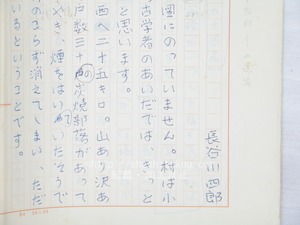 長谷川四郎
図にのっていません。村は小
古学者のあいだでは、きっと
と思います。
西へ二十五キロ。山あり沢あ
戸数三十戸の炭焼部落があって
やき、煙をはいていたそうで
のこらず消えてしまい、ただ
いるということです。